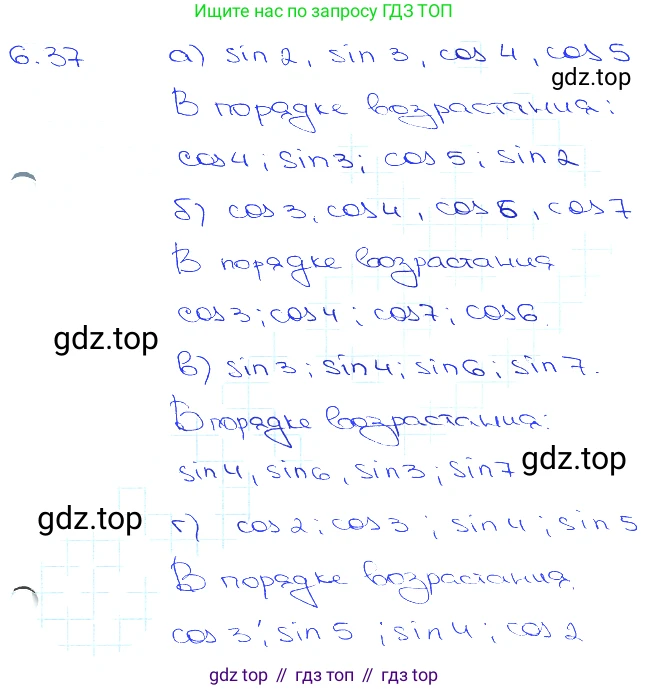 Ищите нас по запросу ГДЗ ТОП
6.37 а) sin 2, sin 3, cos 4, cos 5
gdz.top
В порядке возрастания:
cos 4; sin 3; cos 5; sin 2
б) cos 3, cos 4, cos 6, cos 7
В порядке возрастания
cos 3; cos 4; cos 7; cos 6.
gdz.top
в) sin 3; sin 4; sin 6; sin 7.
В порядке возрастания:
sin 4, sin 6, sin 3; sin 7
gdz.top
gdz.top
г) cos 2; cos 3; sin 4; sin 5
В порядке возрастания.
cos 3; sin 5; sin 4; cos 2
gdz top // гдз топ // gdz top